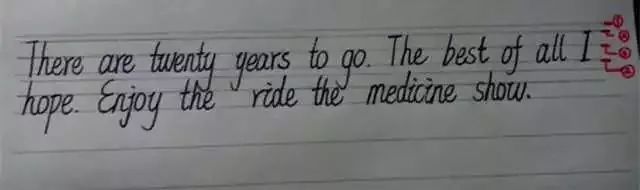 There are twenty years to go. The best of all I
hope. Enjoy the ride the medicine show.